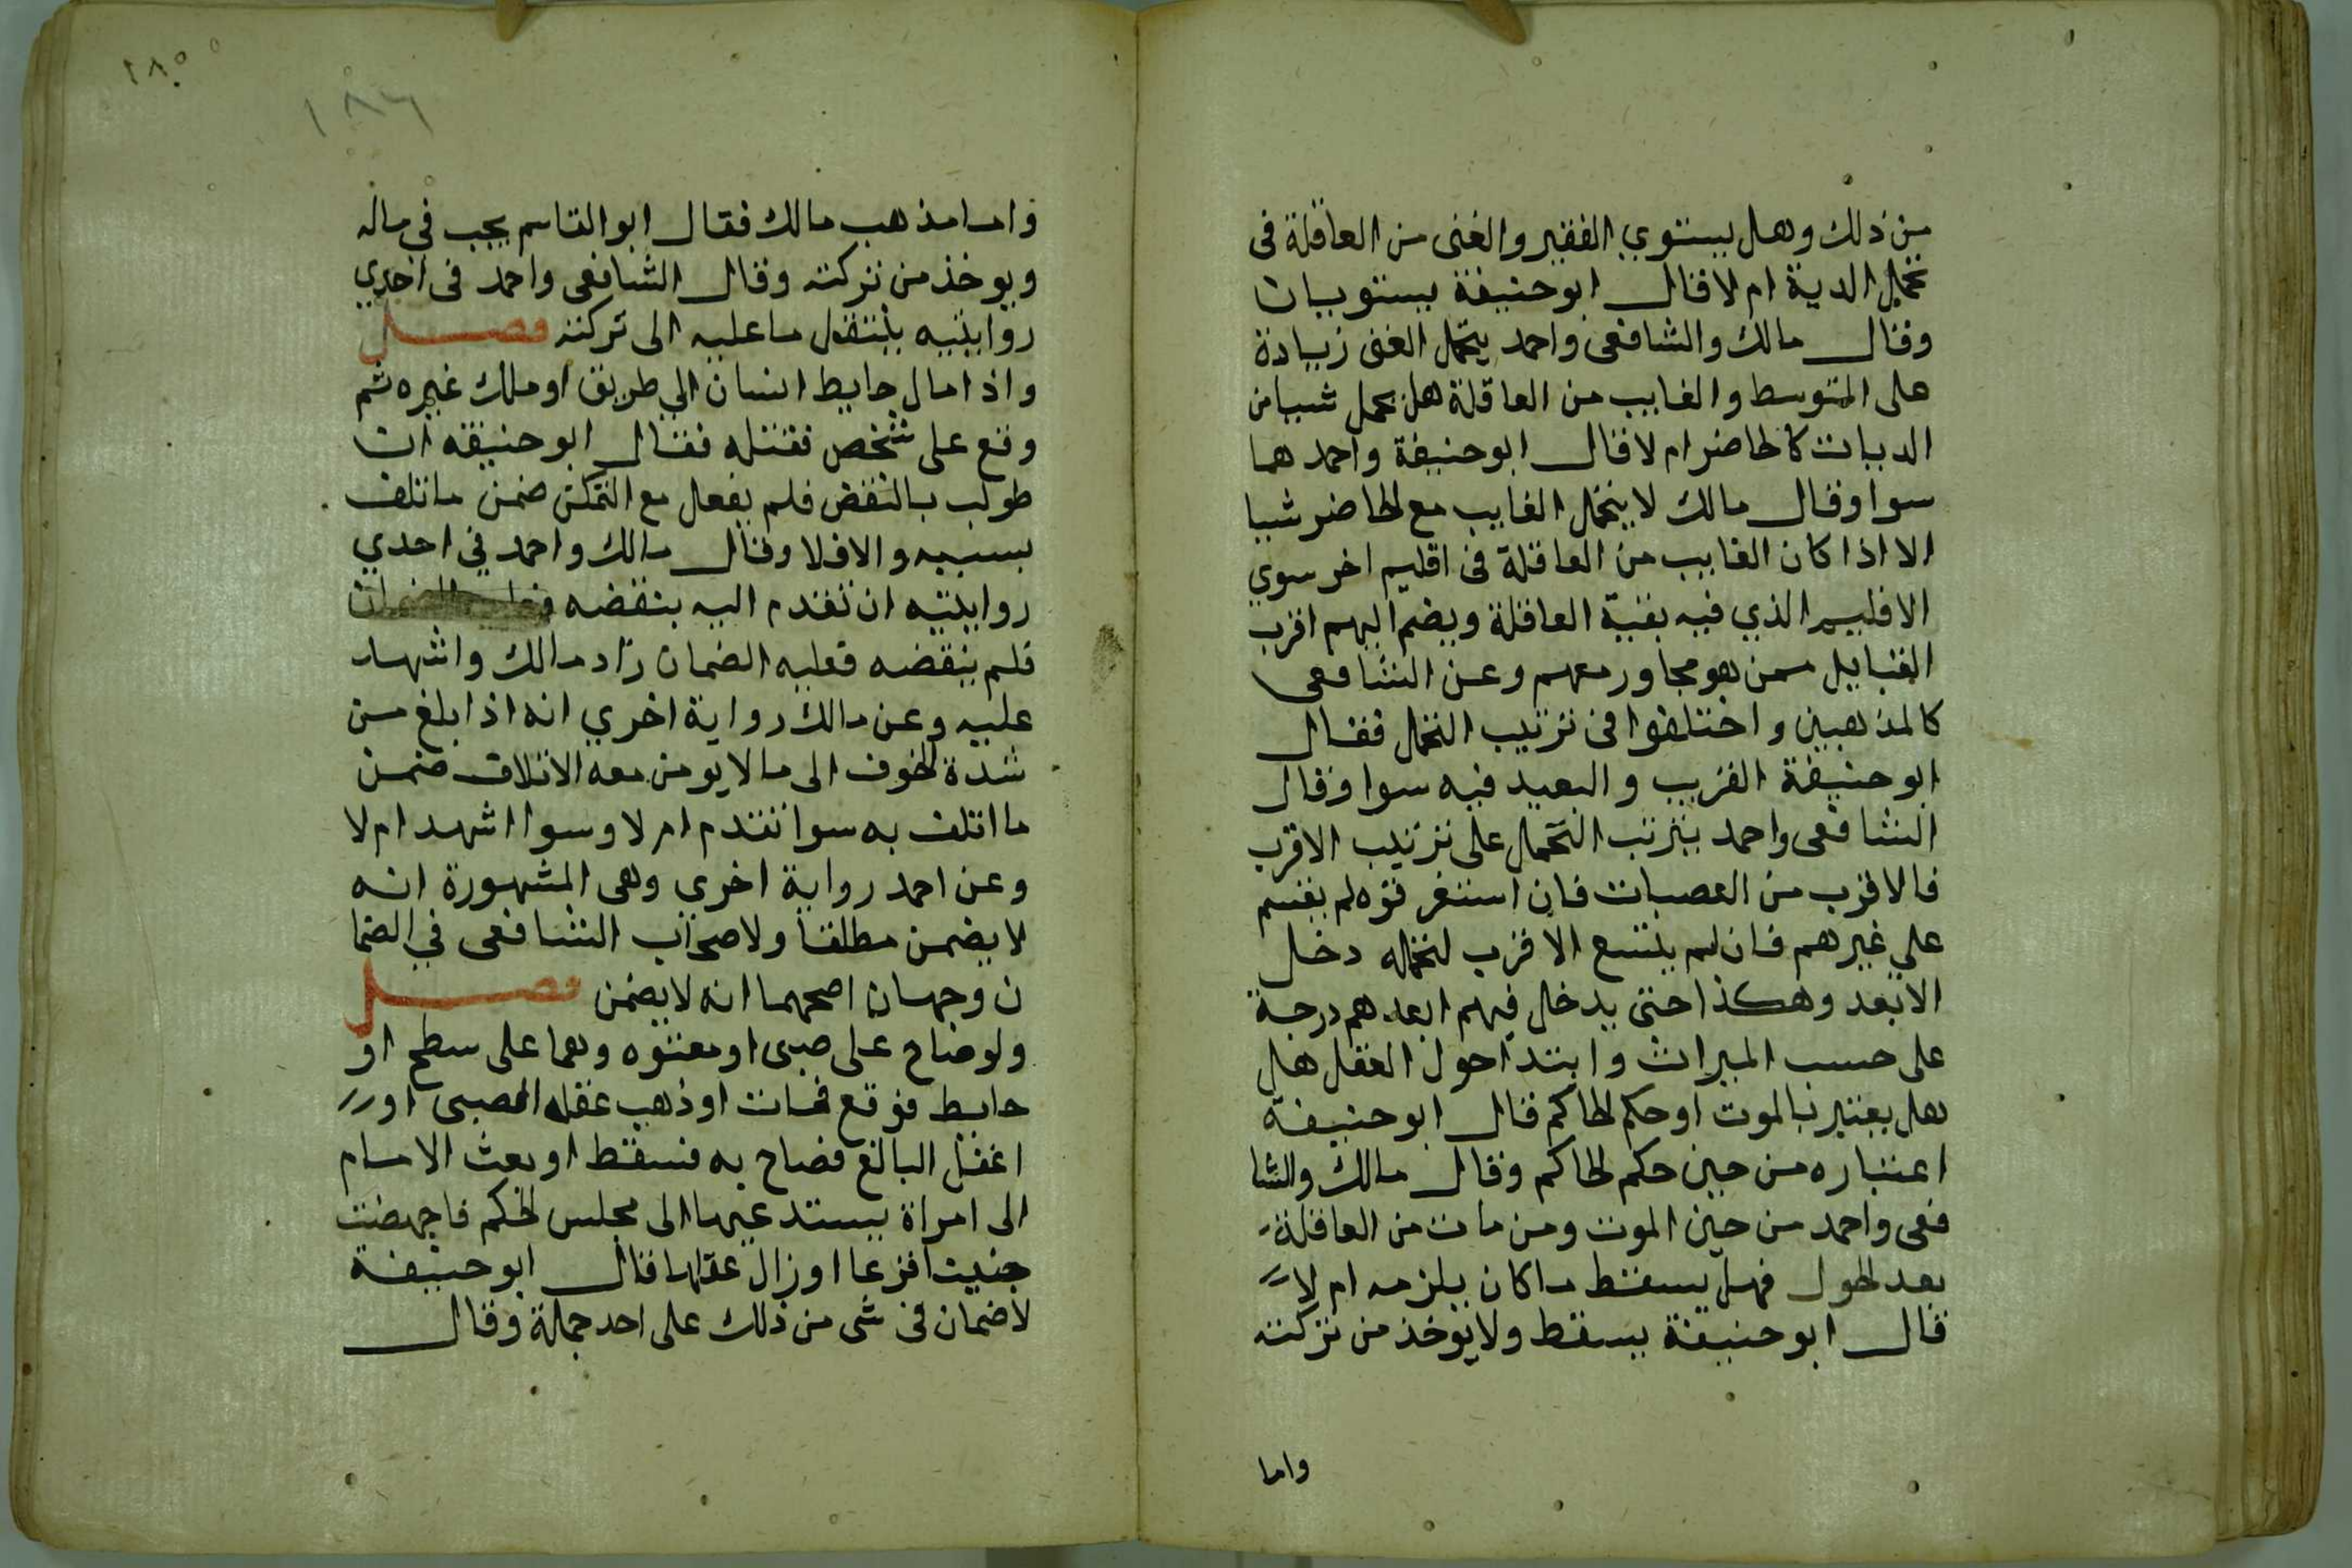 من ذلك وهل يستوي الفقير والغنى من العاقلة فى
تحمل الدية ام لا قال ابو حنيفة يستويان
وقال مالك والشافعى واحمد يتحمل الغنى زيادة
على المتوسط والغايب من العاقلة هل يحمل شيا من
الديات كالحاضر ام لا قال ابو حنيفة واحمد هما
سوا وقال مالك لا يتحمل الغايب مع الحاضر شيا
الا اذا كان الغايب من العاقلة فى اقليم اخر سوي
الاقليم الذي فيه بقية العاقلة ويضم اليهم اقرب
القبايل ممن هو مجاور معهم وعن الشافعى
كالمذهبين واختلفوا فى ترتيب التحمل فقال
ابو حنيفة القريب والبعيد فيه سوا وقال
الشافعى واحمد يترتب التحمل على ترتيب الاقرب
فالاقرب من العصبات فان استغرقوه لم يقسم
علي غيرهم فان لم يتسع الاقرب لتحمله دخل
الابعد وهكذا حتى يدخل فيهم ابعدهم درجة
على حسب الميراث وابتدا حول العقل هل
هل يعتبر بالموت او حكم الحاكم قال ابو حنيفة
اعتباره من حين حكم الحاكم وقال مالك والشا
فعى واحمد من حين الموت ومن مات من العاقلة
بعد الحول فهل يسقط ما كان يلزمه ام لا
قال ابو حنيفة يسقط ولا يوخذ من تركته
واما
١٨٥
١٨٦
واما مذهب مالك فقال ابو القاسم يجب في ماله
ويوخذ من تركته وقال الشافعى واحمد فى احدي
روايتيه ينتقل ما عليه الى تركته فصل
واذا مال حايط انسان الي طريق او ملك غيره ثم
وقع على شخص فقتله فقال ابو حنيفه ان
طولب بالنقض فلم يفعل مع التمكن ضمن ما تلف
بسببه والا فلا وقال مالك واحمد في احدي
روايتيه ان تقدم اليه بنقضه فعليه الضمان
فلم ينقضه فعليه الضمان زاد مالك واشهد
عليه وعن مالك رواية اخري انه اذا بلغ من
شدة الخوف الى ما لا يومن معه الاتلاف ضمن
ما اتلف به سوا تقدم ام لا وسوا اشهد ام لا
وعن احمد رواية اخرى وهى المشهورة انه
لا يضمن مطلقا ولاصحاب الشافعى في الضما
ن وجهان اصحهما انه لا يضمن فصل
ولو صاح على صبى او معتوه وهما على سطح او
حايط فوقع فمات او ذهب عقله الصبى او
اغفل البالغ فصاح به فسقط او بعث الامام
الى امراة يستدعيها الى مجلس الحكم فاجهضت
جنينا فزعا او زال عقلها قال ابو حنيفة
لا ضمان فى شى من ذلك على احد جملة وقال